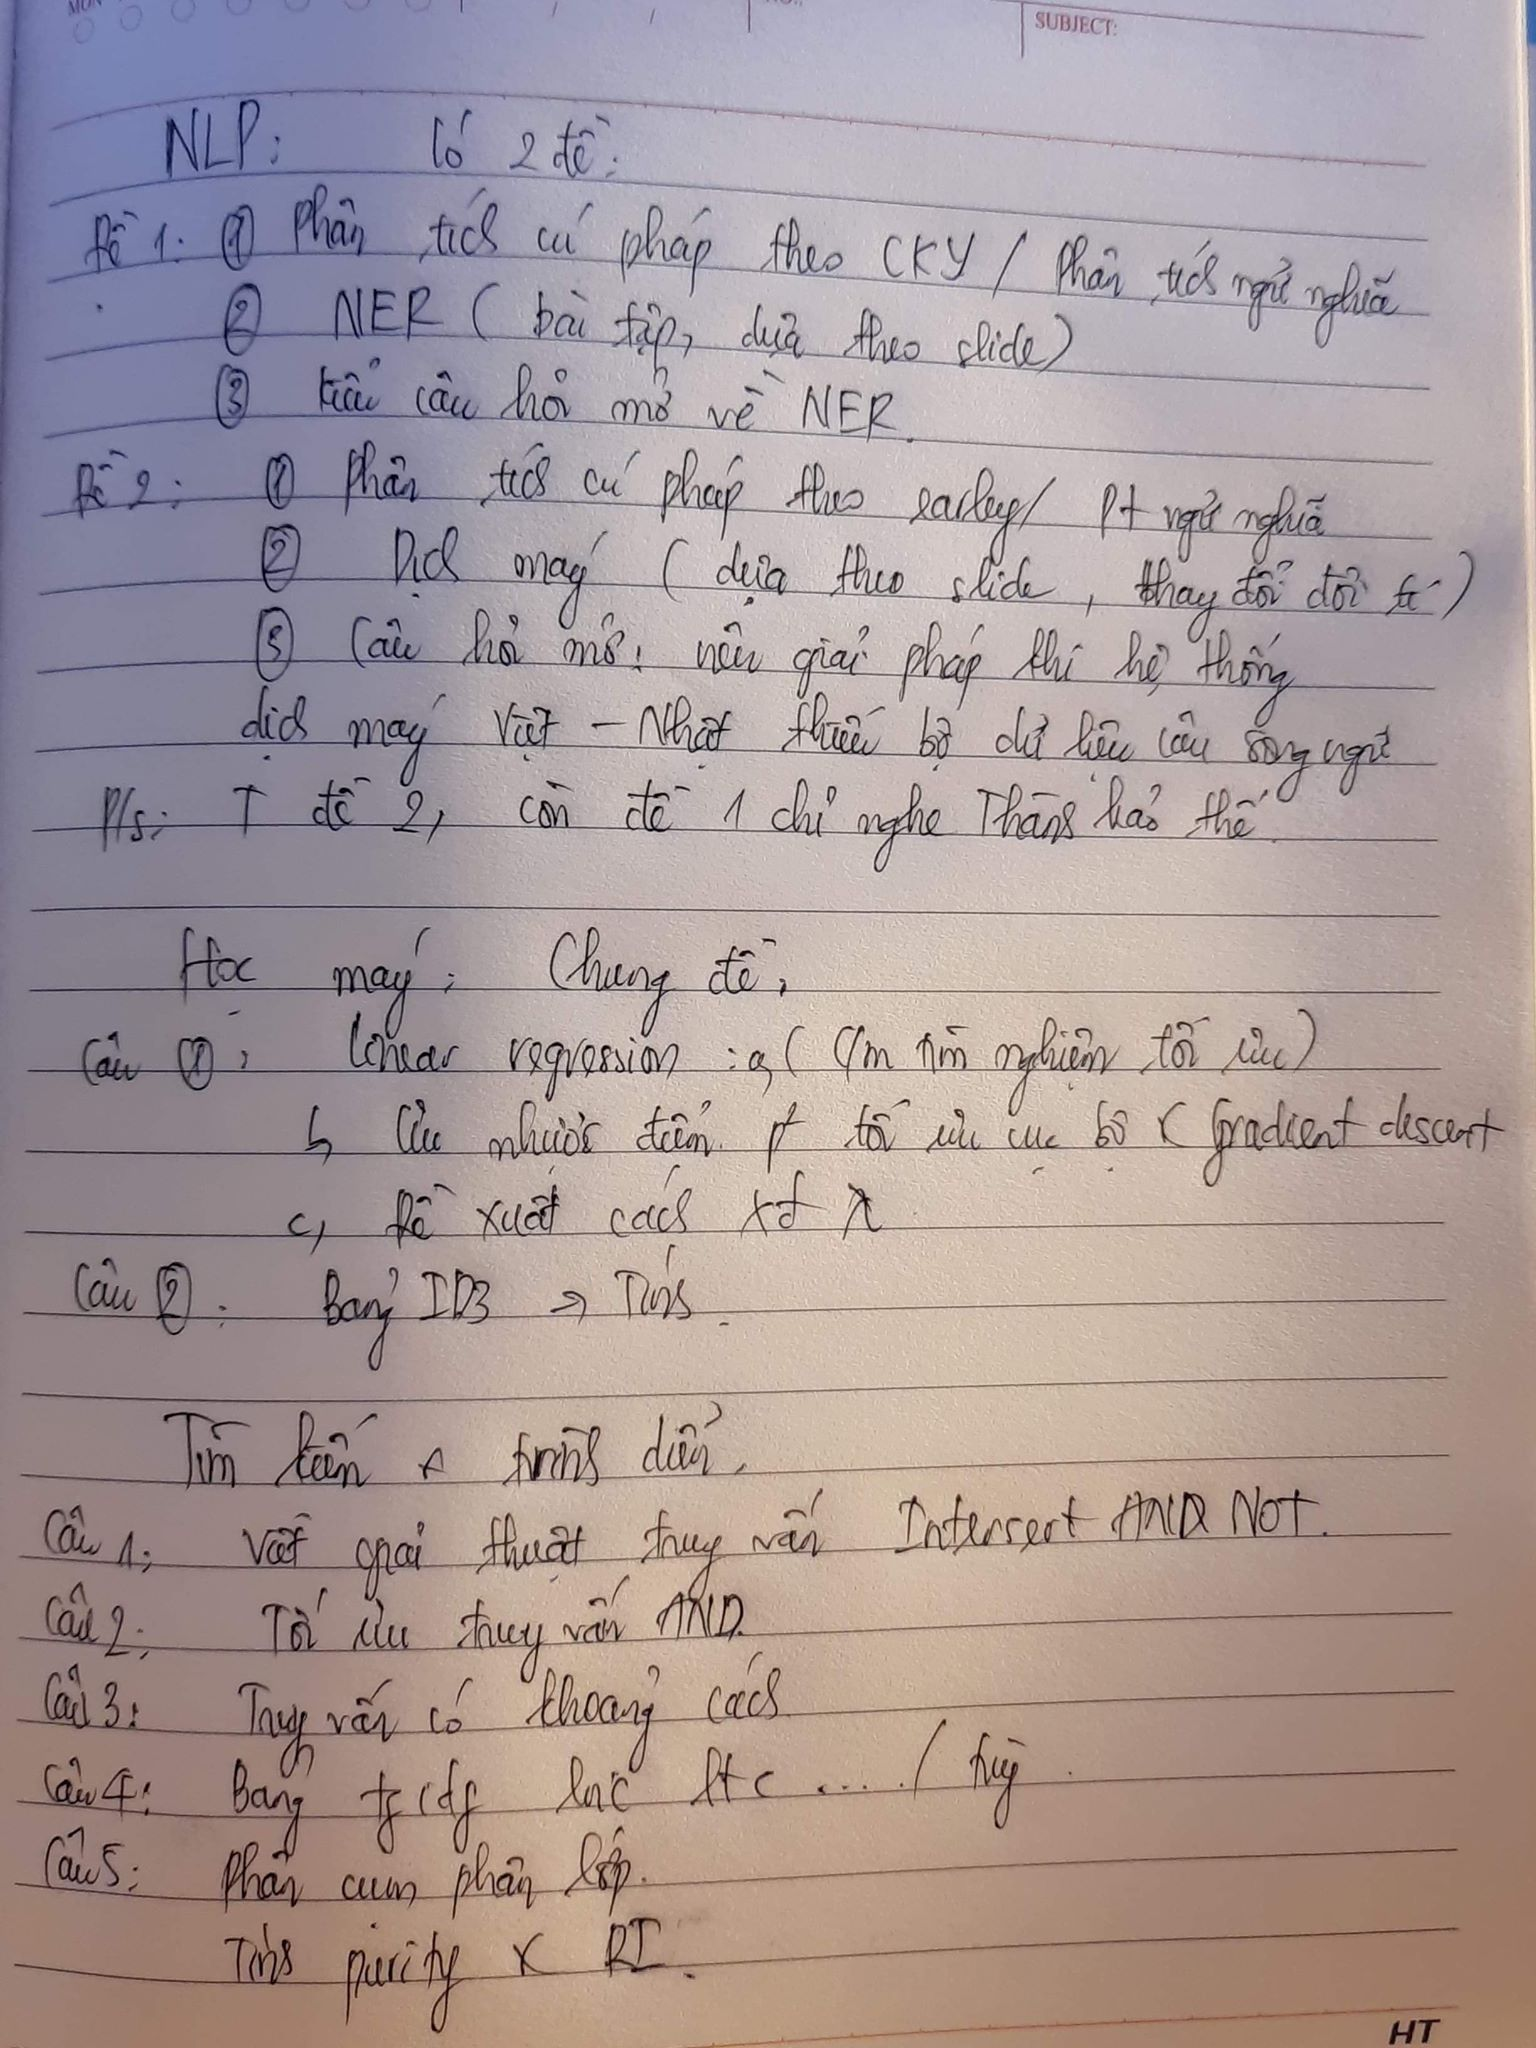 MON
SUBJECT:
NLP: Có 2 đề:
Đề 1: ① Phân tích cú pháp theo CKY / Phân tích ngữ nghĩa
② NER (bài tập, dựa theo slide)
③ Kiểu câu hỏi mở về NER.
Đề 2: ① Phân tích cú pháp theo earley / Pt ngữ nghĩa
② Dịch máy (dựa theo slide, thay đổi đôi tí)
③ Câu hỏi mở: nêu giải pháp khi hệ thống
dịch máy Việt - Nhật thiếu bộ dữ liệu câu song ngữ
P/s: T đề 2, còn đề 1 chỉ nghe Thành bảo thế.
Học máy: Chung đề:
Câu ①: linear regression: a, (C/m tìm nghiệm tối ưu)
b, Ưu nhược điểm pt tối ưu cục bộ & Gradient descent
c, Đề xuất cách xđ λ
Câu ②: Bảng ID3 → Tính.
Tìm kiếm & trình diễn.
Câu 1: Viết giải thuật truy vấn Intersert AND NOT.
Câu 2: Tối ưu truy vấn AND.
Câu 3: Truy vấn có khoảng cách
Câu 4: Bảng tf idf lnc ltc .... / truy
Câu 5: Phân cụm phân lớp.
Tính purity & RI.
HT